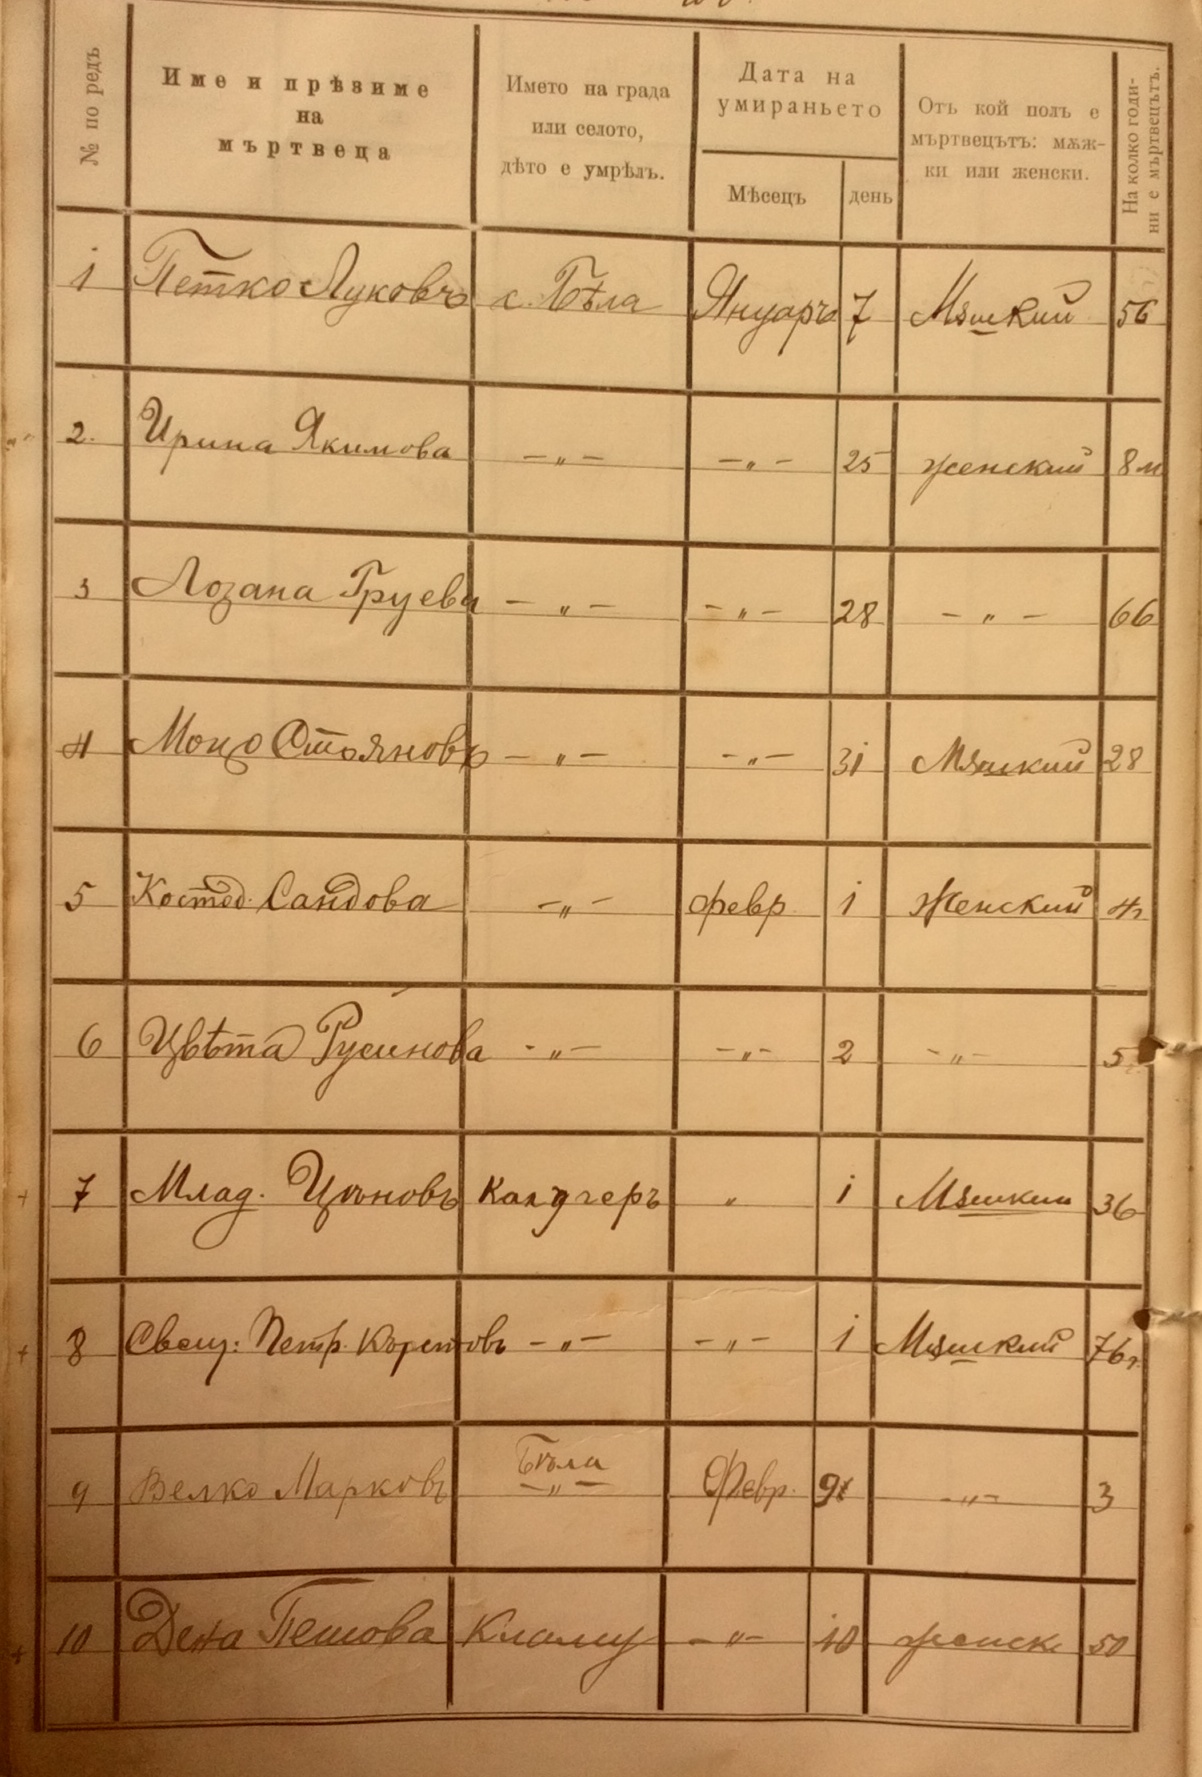 № по редъ
Име и прѣзиме
на
мъртвеца
Името на града
или селото,
дѣто е умрѣлъ.
Дата на
умираньето
Мѣсецъ
день
Отъ кой полъ е
мъртвецътъ: мѫж-
ки или женски.
На колко годи-
ни е мъртвецътъ.
1 Петко Луковъ с. Бѣла Януаръ 7 Мѫшкий 56
2. Ирина Якимова —„— —„— 25 женский 8 м
3 Лозана Груева —„— —„— 28 —„— 66
4 Моно Стояновъ —„— —„— 31 Мѫшкий 28
5 Сандова —„— февр. 1 Женский 4
6 Цвѣта Русинова —„— —„— 2 —„— 5
7 Млад. Цоновъ Калугеръ „ 1 Мѫшкий 36
8 Свещ: Петр. —„— —„— 1 Мѫшкий 76 г.
9 Велко Марковъ Бѣла —„— Февр. 9 —„— 3
10 Дена Пешова —„— 10 женск 50